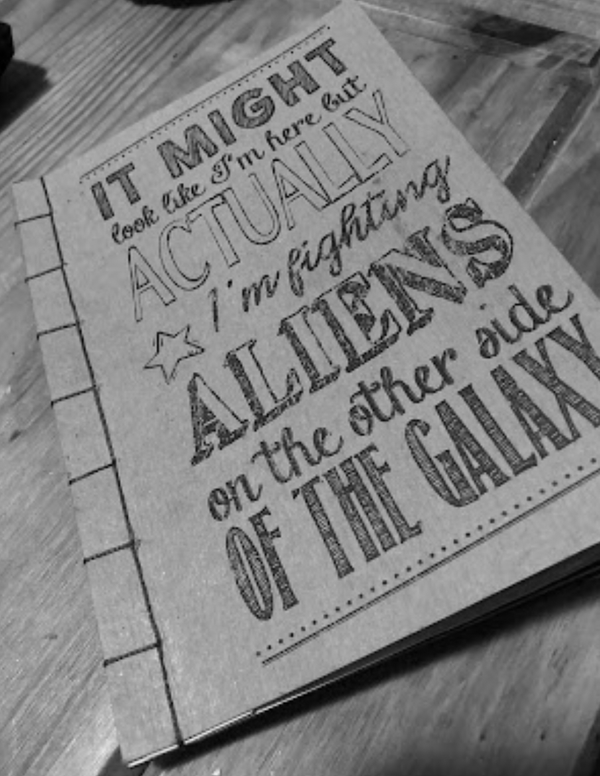 IT MIGHT
look like I'm here but
ACTUALLY
I'm fighting
ALIENS
on the other side
OF THE GALAXY